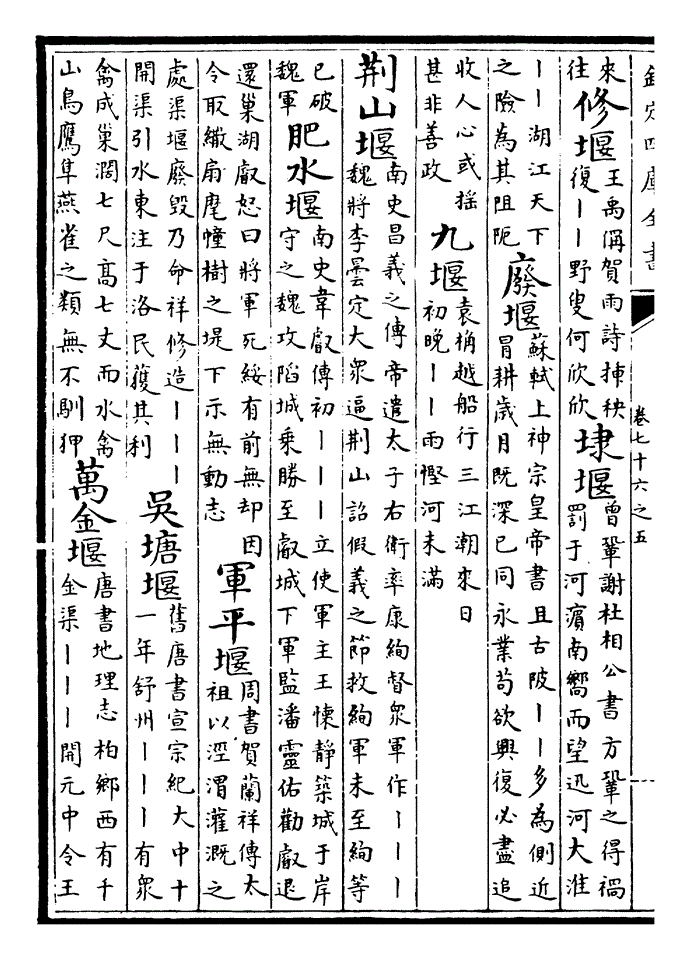 欽定四庫全書
卷七十六之五
來
往
修堰
王禹偁賀雨詩揷秧
復丨丨野叟何欣欣
埭堰
曾鞏謝杜相公書方鞏之得禍
罰于河濵南嚮而望迅河大淮
丨丨湖江天下
之險為其阻阨
廢堰
蘇軾上神宗皇帝書且古陂丨丨多為側近
冒耕歲月既深已同永業苟欲興復必盡追
收人心或搖
甚非善政
九堰
袁桷越船行三江潮來日
初晚丨丨雨慳河未滿
荆山堰
南史昌義之傳帝遣太子右衛率康絢督衆軍作丨丨丨
魏將李曇定大衆逼荆山詔假義之節救絢軍未至絢等
已破
魏軍
肥水堰
南史韋叡傳初丨丨丨立使軍主王懷靜築城于岸
守之魏攻陷城乘勝至叡城下軍監潘靈佑勸叡退
還巢湖叡怒曰將軍死綏有前無却因
令取繖扇麾幢樹之堤下示無動志
軍平堰
周書賀蘭祥傳太
祖以涇渭灌溉之
處渠堰廢毁乃命祥修造丨丨丨
開渠引水東注于洛民獲其利
吳塘堰
舊唐書宣宗紀大中十
一年舒州丨丨丨有衆
禽成巢濶七尺髙七丈而水禽
山鳥鷹隼燕雀之類無不馴狎
萬金堰
唐書地理志柏鄉西有千
金渠丨丨丨開元中令王